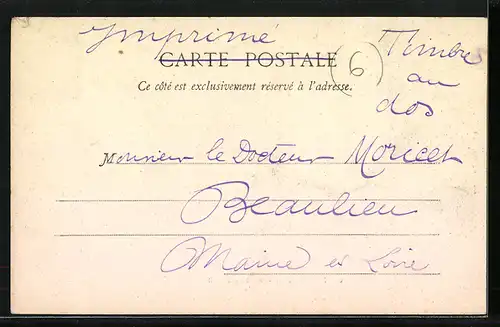 Imprimé
CARTE POSTALE
(6)
Timbre
au
dos
Ce côté est exclusivement réservé à l'adresse.
Monsieur le Docteur Moricet
Beaulieu
Maine et Loire